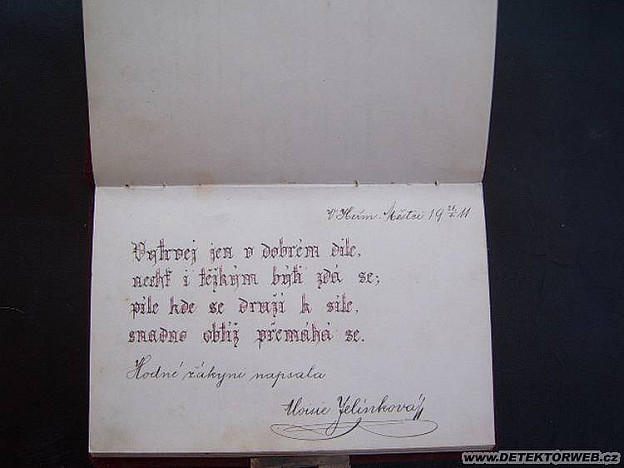 V Heřm. Městci 19 11
Vytrvej jen v dobrém díle,
nechť i těžkým býti zdá se;
píle kde se druží k síle,
snadno obtíž přemáhá se.
Hodné žákyni napsala
Aloisie Jelínková
www.DETEKTORWEB.cz